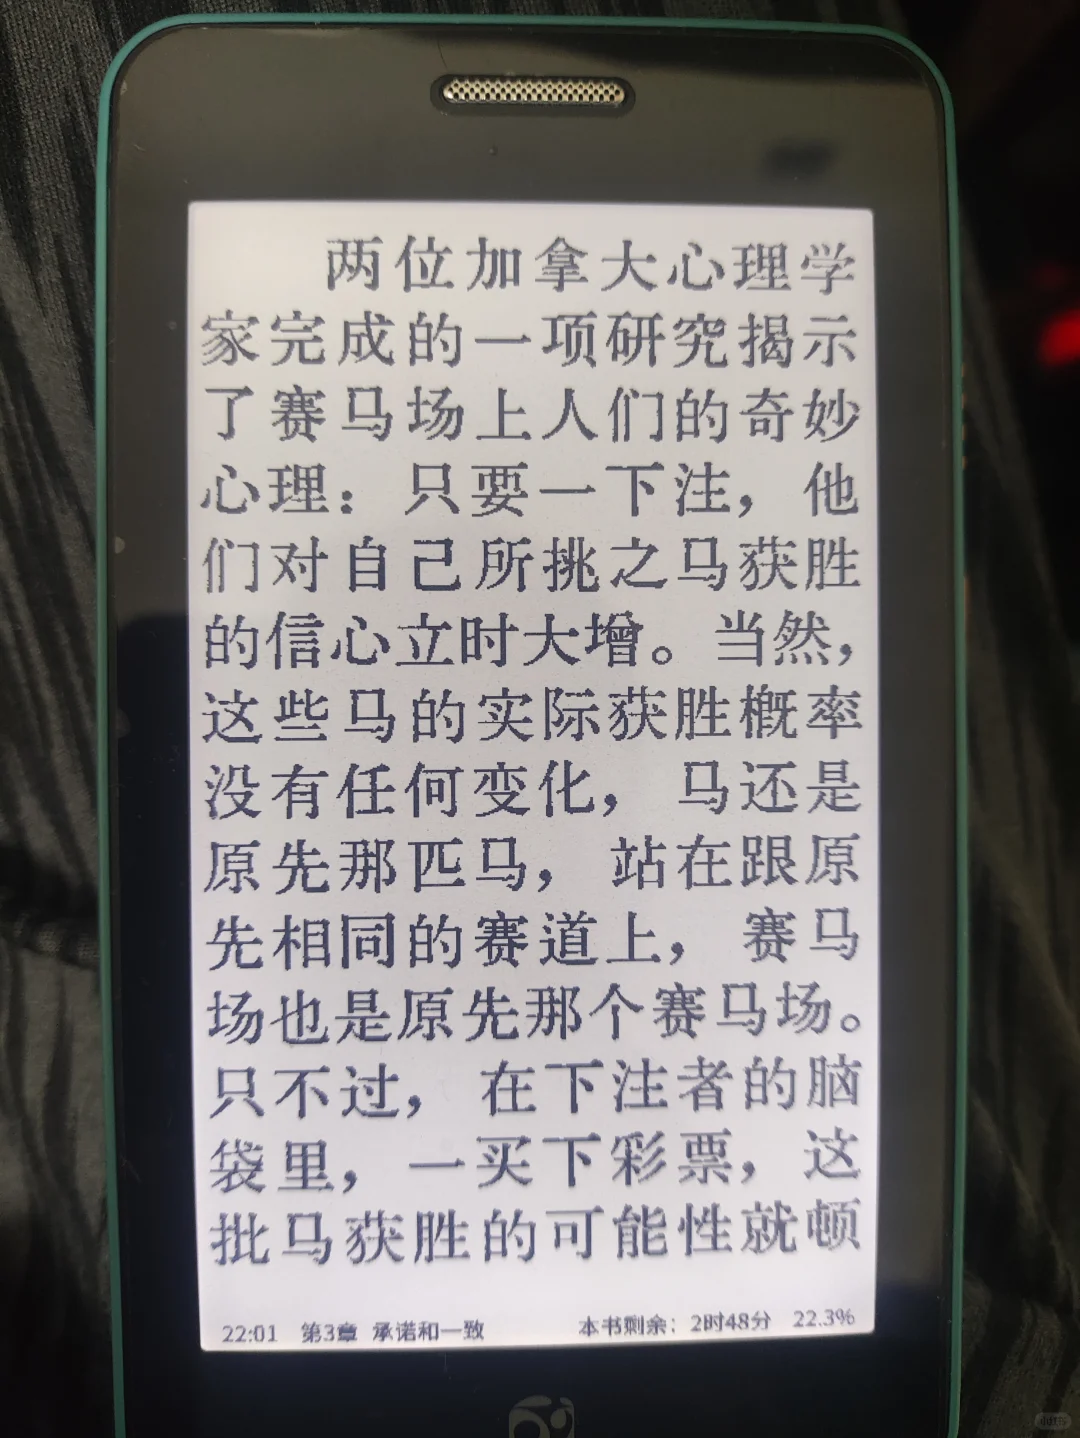 两位加拿大心理学
家完成的一项研究揭示
了赛马场上人们的奇妙
心理：只要一下注，他
们对自己所挑之马获胜
的信心立时大增。当然，
这些马的实际获胜概率
没有任何变化，马还是
原先那匹马，站在跟原
先相同的赛道上，赛马
场也是原先那个赛马场。
只不过，在下注者的脑
袋里，一买下彩票，这
批马获胜的可能性就顿
22:01 第3章 承诺和一致 本书剩余：2时48分 22.3%